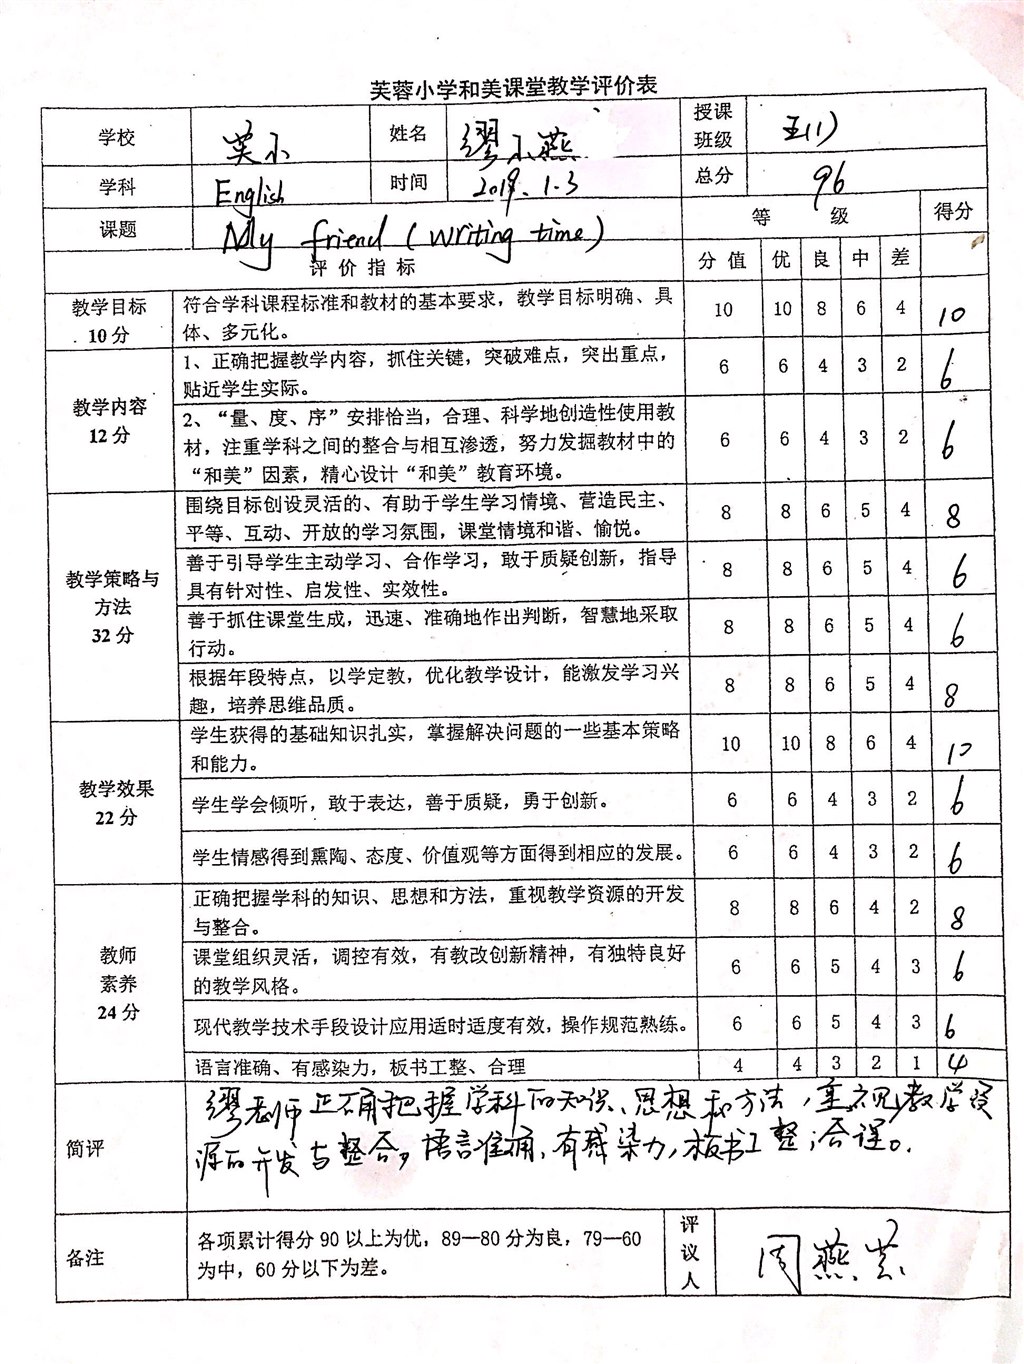 芙蓉小学和美课堂教学评价表
学校 芙小 姓名 缪小燕 授课班级 五(1)
学科 English 时间 2019.1.3 总分 96
课题 My friend (writing time) 等 级 得分
评价指标 分值 优 良 中 差
教学目标 10分 符合学科课程标准和教材的基本要求，教学目标明确、具 10 10 8 6 4 10
体、多元化。
教学内容 12分 1、正确把握教学内容，抓住关键，突破难点，突出重点， 6 6 4 3 2 6
贴近学生实际。
2、“量、度、序”安排恰当，合理、科学地创造性使用教
材，注重学科之间的整合与相互渗透，努力发掘教材中的 6 6 4 3 2 6
“和美”因素，精心设计“和美”教育环境。
教学策略与方法 32分 围绕目标创设灵活的、有助于学生学习情境、营造民主、 8 8 6 5 4 8
平等、互动、开放的学习氛围，课堂情境和谐、愉悦。
善于引导学生主动学习、合作学习，敢于质疑创新，指导 8 8 6 5 4 6
具有针对性、启发性、实效性。
善于抓住课堂生成，迅速、准确地作出判断，智慧地采取 8 8 6 5 4 6
行动。
根据年段特点，以学定教，优化教学设计，能激发学习兴 8 8 6 5 4 8
趣，培养思维品质。
教学效果 22分 学生获得的基础知识扎实，掌握解决问题的一些基本策略 10 10 8 6 4 10
和能力。
学生学会倾听，敢于表达，善于质疑，勇于创新。 6 6 4 3 2 6
学生情感得到熏陶、态度、价值观等方面得到相应的发展。 6 6 4 3 2 6
教师素养 24分 正确把握学科的知识、思想和方法，重视教学资源的开发 8 8 6 4 2 8
与整合。
课堂组织灵活，调控有效，有教改创新精神，有独特良好 6 6 5 4 3 6
的教学风格。
现代教学技术手段设计应用适时适度有效，操作规范熟练。 6 6 5 4 3 6
语言准确、有感染力，板书工整、合理 4 4 3 2 1 4
简评 缪老师正确把握学科的知识、思想和方法，重视教学资
源的开发与整合。语言准确，有感染力，板书工整，合理。
备注 各项累计得分90以上为优，89—80分为良，79—60 评议人 周燕芬
为中，60分以下为差。